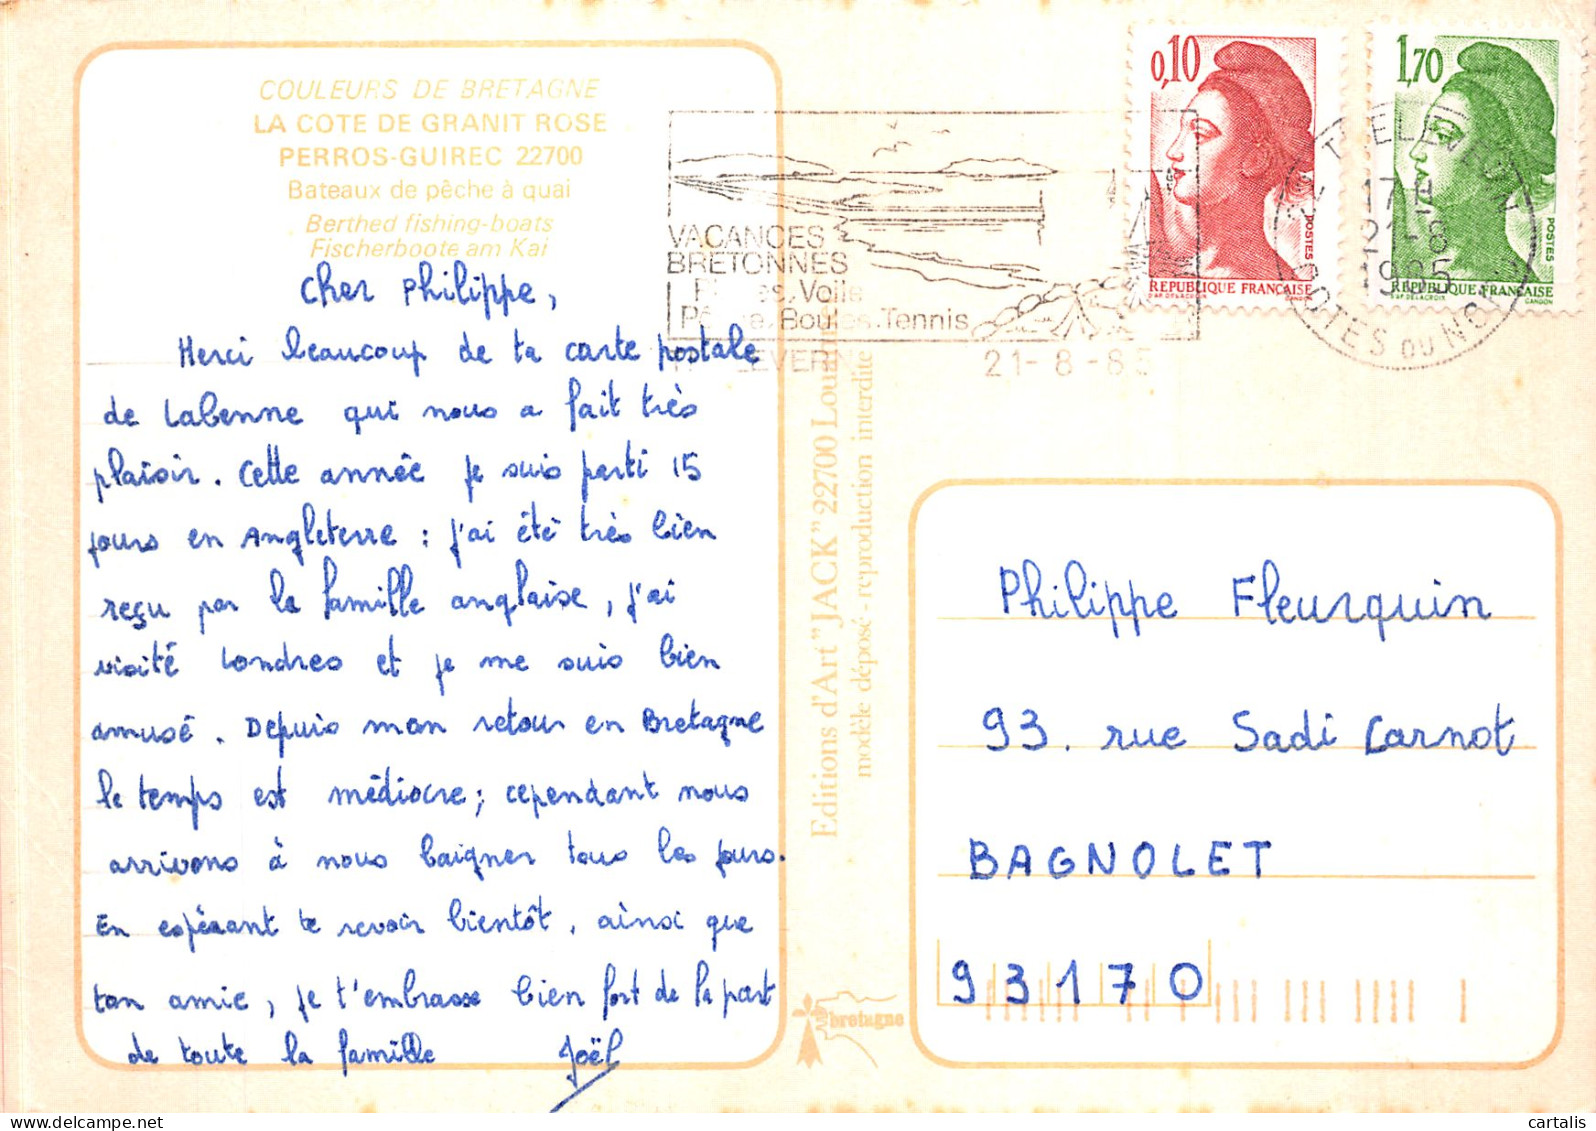 COULEURS DE BRETAGNE
LA COTE DE GRANIT ROSE
PERROS-GUIREC 22700
Bateaux de pêche à quai
Berthed fishing-boats
Fischerboote am Kai
Cher Philippe,
Merci beaucoup de ta carte postale
de Labenne qui nous a fait très
plaisir. Cette année je suis parti 15
jours en Angleterre : j'ai été très bien
reçu par la famille anglaise, j'ai
visité Londres et je me suis bien
amusé. Depuis mon retour en Bretagne
le temps est médiocre; cependant nous
arrivons à nous baigner tous les jours.
En espérant te revoir bientôt, ainsi que
ton amie, je t'embrasse bien fort de la part
de toute la famille
Joël
VACANCES
BRETONNES
Voile
Boules. Tennis
21-8-85
0,10
POSTES
REPUBLIQUE FRANÇAISE
D'AP. DELACROIX GANDON
1,70
POSTES
REPUBLIQUE FRANÇAISE
D'AP. DELACROIX GANDON
17 H
21-8
1985
COTES DU NORD
Editions d'Art "JACK" 22700
modèle déposé - reproduction interdite
bretagne
Philippe Fleurquin
93. rue Sadi Carnot
BAGNOLET
93170
cartalis